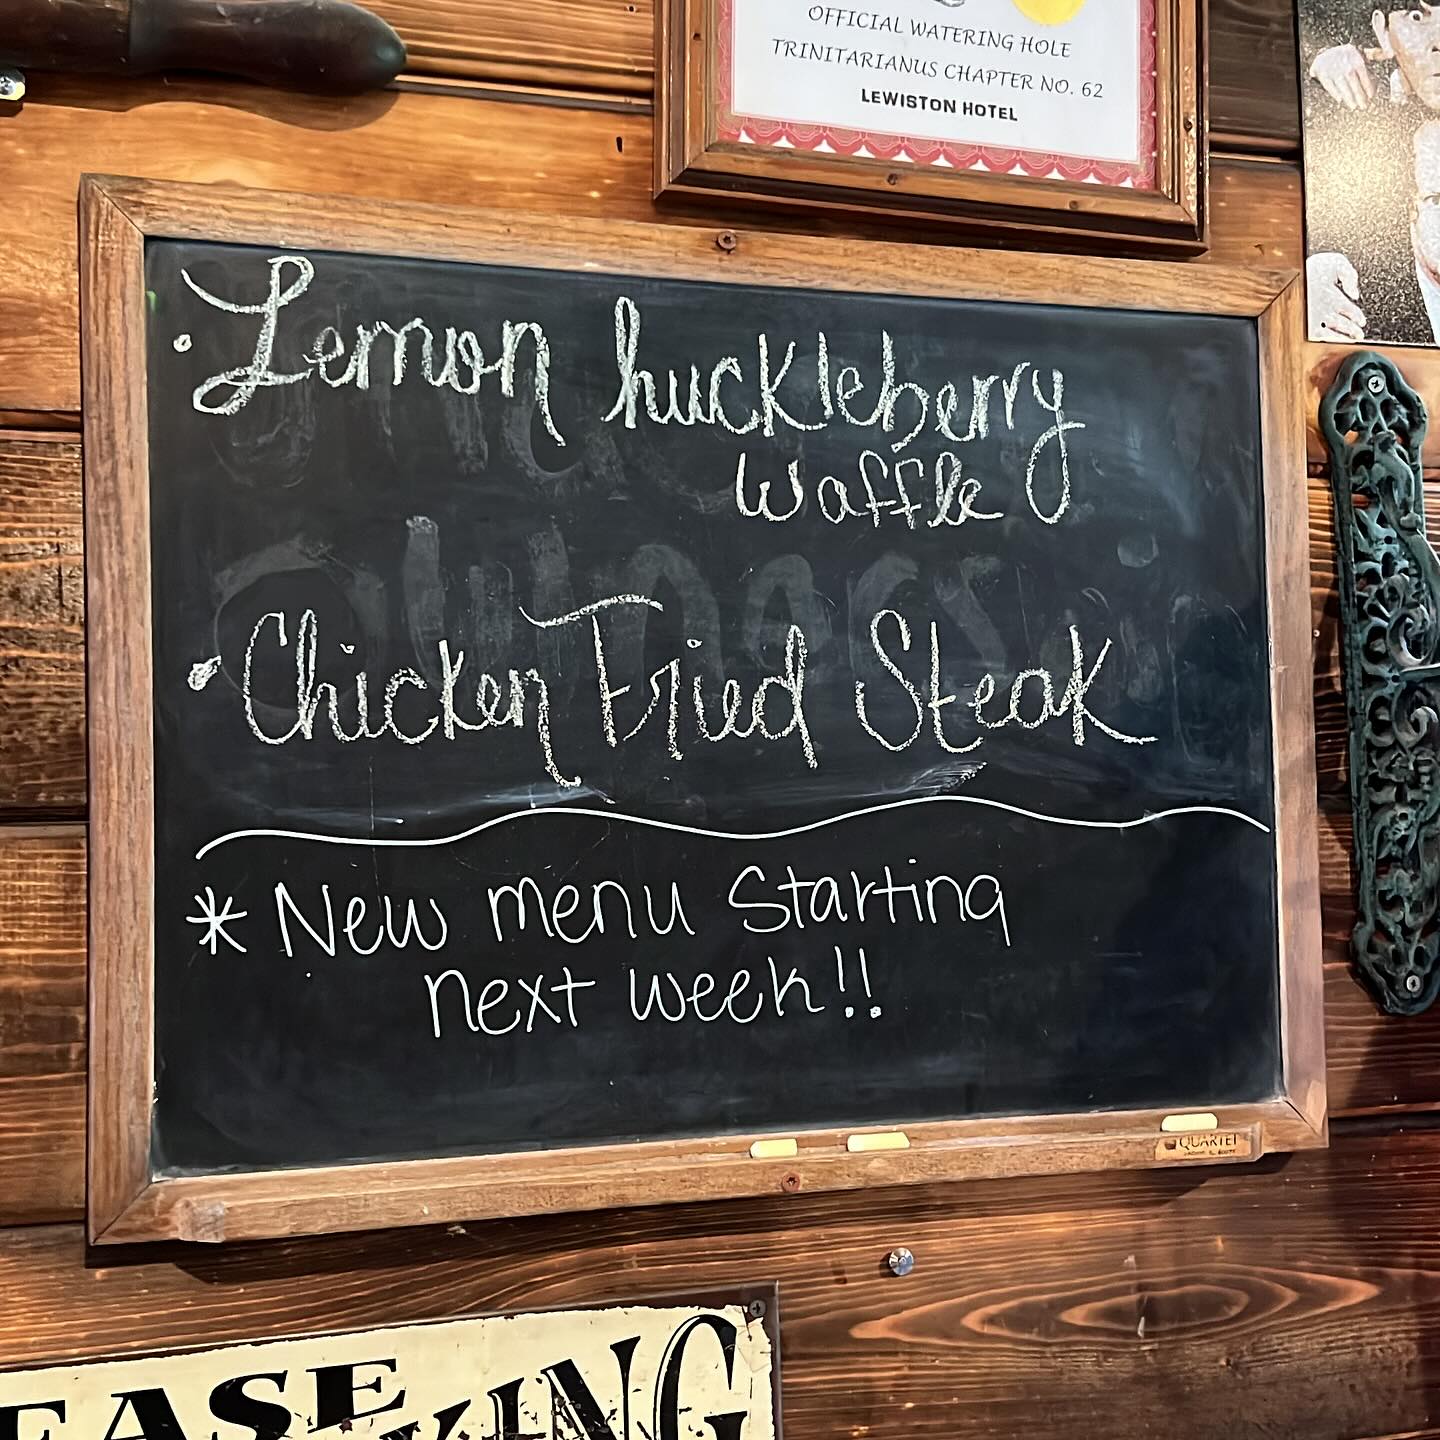 OFFICIAL WATERING HOLE
TRINITARIANUS CHAPTER NO. 62
LEWISTON HOTEL
• Lemon huckleberry
waffle
• Chicken Fried Steak
* New menu starting
next week!!
QUARTET
EASE
KING